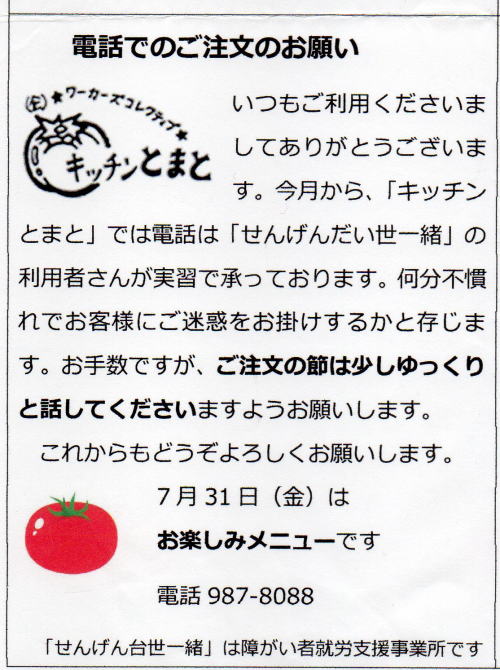 電話でのご注文のお願い
(企)★ワーカーズコレクティブ★
キッチンとまと
いつもご利用くださいま
してありがとうございま
す。今月から、「キッチン
とまと」では電話は「せんげんだい世一緒」の
利用者さんが実習で承っております。何分不慣
れでお客様にご迷惑をお掛けするかと存じま
す。お手数ですが、ご注文の節は少しゆっくり
と話してくださいますようお願いします。
これからもどうぞよろしくお願いします。
7月31日（金）は
お楽しみメニューです
電話 987-8088
「せんげん台世一緒」は障がい者就労支援事業所です